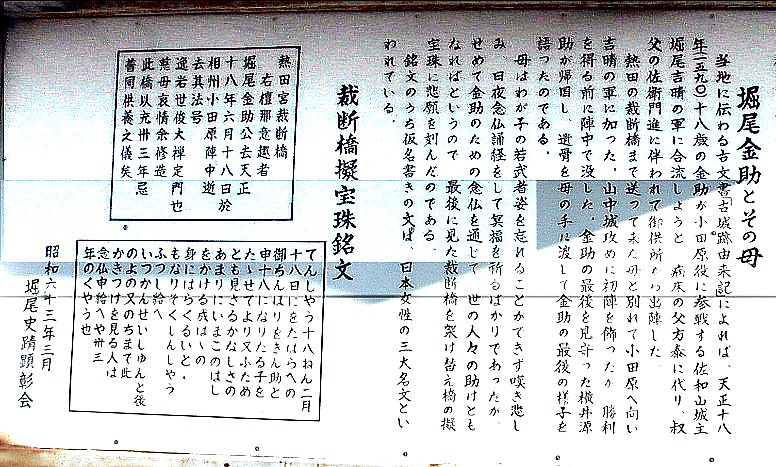 堀尾金助とその母
当地に伝わる古文書「古城跡由来記」によれば、天正十八
年(一五九〇)十八歳の金助が小田原役に参戦する佐和山城主
堀尾吉晴の軍に合流しようと 病床の父方泰に代り、叔
父の佐衛門進に伴われて御供所から出陣した。
熱田の裁断橋まで送って来た母と別れて小田原へ向い
吉晴の軍に加った。山中城攻めに初陣を飾ったが 勝利
を得る前に陣中で没した。金助の最後を見守った横井源
助が帰国し、遺骨を母の手に渡して金助の最後の様子を
語ったのである。
母はわが子の若武者姿を忘れることができず嘆き悲し
み、日夜念仏誦経をして冥福を祈るばかりであったが、
せめて金助のための念仏を通じて 世の人々の助けとも
なればというので 最後に見た裁断橋を架け替え橋の擬
宝珠に悲願を刻んだのである。
銘文のうち仮名書きの文は、日本女性の三大名文とい
われている。
裁断橋擬宝珠銘文
熱田宮裁断橋
右檀那意趣者
堀尾金助公去天正
十八年六月十八日於
相州小田原陣中逝
去其法号
逸岩世俊大禅定門也
慈母哀情余修造
此橋以充卅三年忌
普同供養之儀矣
てんしやう十八ねん二月
十八日にをたはらへの
御ぢんほりをきん助と
申十八になりたる子を
たゝせてより又ふため
とも見さるかなしさの
あまりにいまこのはし
をかける成はゝの
身にはらくるいと
もなりそくしんしやう
ふつし給へ
いつかんせいしゆんと後
のよの又のちまて此
かきつけを見る人は
念仏申給へや卅三
年のくやう也
昭和六十三年三月
堀尾史蹟顕彰会